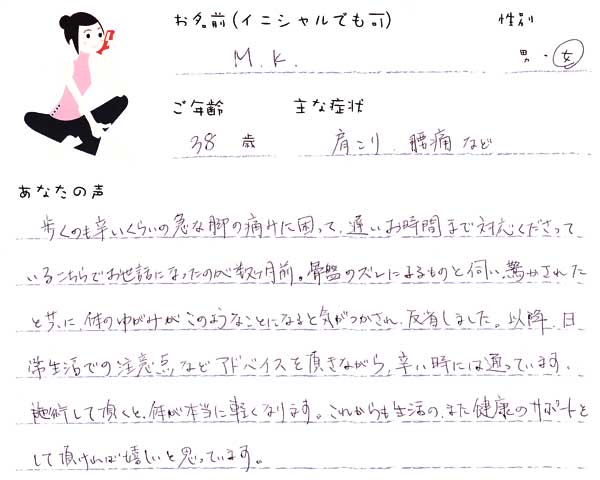 お名前(イニシャルでも可)
性別
M.K.
男・女
ご年齢
主な症状
38 歳
肩こり、腰痛など
あなたの声
歩くのも辛いくらいの急な脚の痛みに困って、遅いお時間まで対応くださって
いるこちらでお世話になったのが数ヶ月前。骨盤のズレによるものと伺い、驚かされた
と共に、体のゆがみがこのようなことになると気がつかされ、反省しました。以降、日
常生活での注意点などアドバイスを頂きながら、辛い時には通っています。
施術して頂くと、体が本当に軽くなります。これからも生活の、また健康のサポートを
して頂ければ嬉しいと思っています。